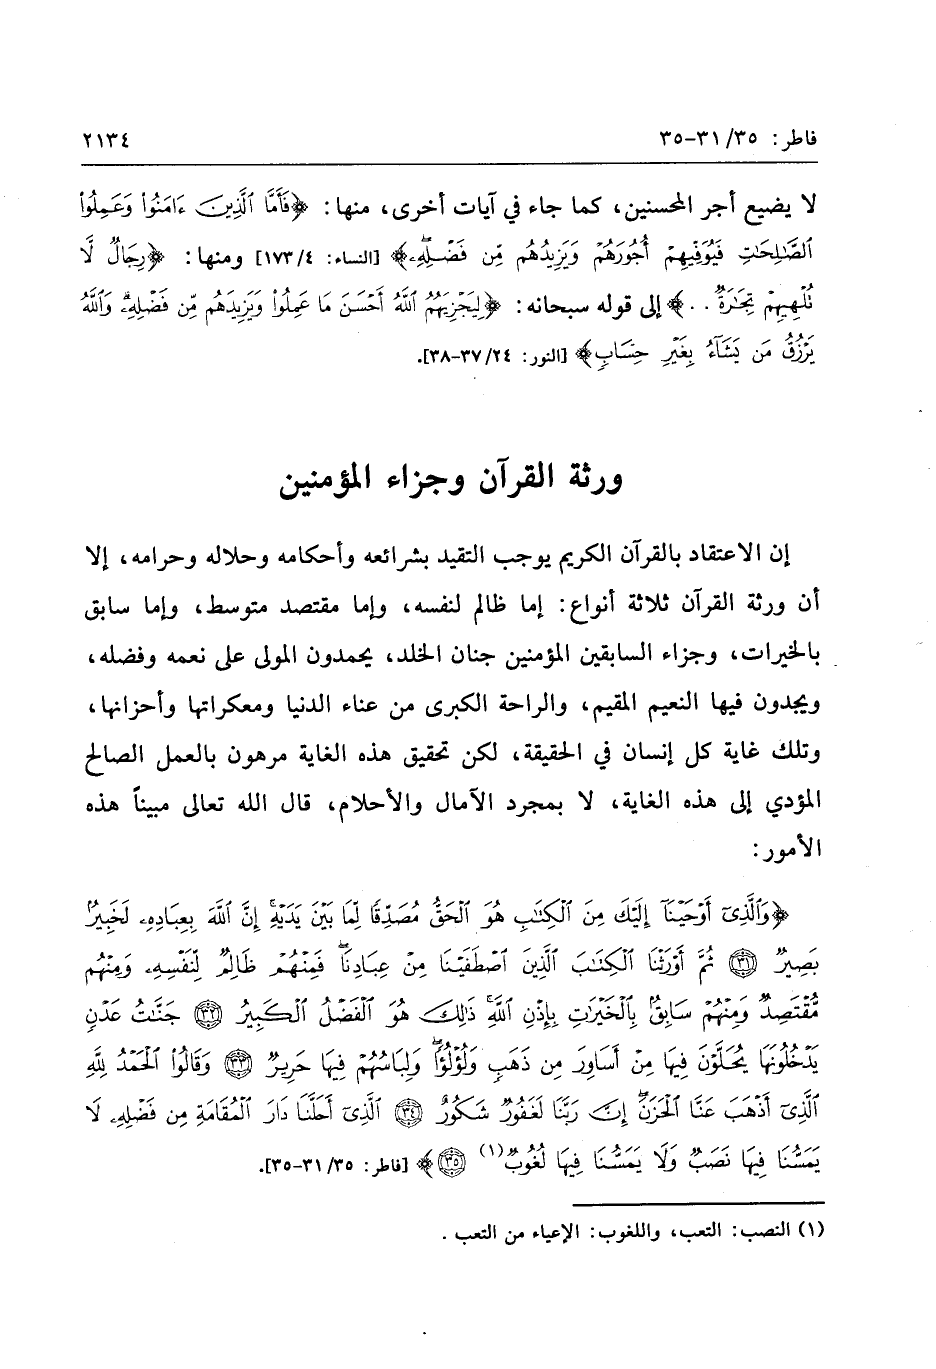 فاطر: ٣٥/ ٣١-٣٥ ٢١٣٤
لا يضيع أجر المحسنين، كما جاء في آيات أخرى، منها: ﴿فَأَمَّا ٱلَّذِينَ ءَامَنُوا۟ وَعَمِلُوا۟
ٱلصَّـٰلِحَـٰتِ فَيُوَفِّيهِمْ أُجُورَهُمْ وَيَزِيدُهُم مِّن فَضْلِهِۦ﴾ [النساء: ٤/ ١٧٣] ومنها: ﴿رِجَالٌ لَّا
تُلْهِيهِمْ تِجَـٰرَةٌ . . ﴾ إلى قوله سبحانه: ﴿لِيَجْزِيَهُمُ ٱللَّهُ أَحْسَنَ مَا عَمِلُوا۟ وَيَزِيدَهُم مِّن فَضْلِهِۦ وَٱللَّهُ
يَرْزُقُ مَن يَشَآءُ بِغَيْرِ حِسَابٍ﴾ [النور: ٢٤/ ٣٧-٣٨].
ورثة القرآن وجزاء المؤمنين
إن الاعتقاد بالقرآن الكريم يوجب التقيد بشرائعه وأحكامه وحلاله وحرامه، إلا
أن ورثة القرآن ثلاثة أنواع: إما ظالم لنفسه، وإما مقتصد متوسط، وإما سابق
بالخيرات، وجزاء السابقين المؤمنين جنان الخلد، يحمدون المولى على نعمه وفضله،
ويجدون فيها النعيم المقيم، والراحة الكبرى من عناء الدنيا ومعكراتها وأحزانها،
وتلك غاية كل إنسان في الحقيقة، لكن تحقيق هذه الغاية مرهون بالعمل الصالح
المؤدي إلى هذه الغاية، لا بمجرد الآمال والأحلام، قال الله تعالى مبيناً هذه
الأمور:
﴿وَٱلَّذِىٓ أَوْحَيْنَآ إِلَيْكَ مِنَ ٱلْكِتَـٰبِ هُوَ ٱلْحَقُّ مُصَدِّقًا لِّمَا بَيْنَ يَدَيْهِ إِنَّ ٱللَّهَ بِعِبَادِهِۦ لَخَبِيرٌۢ
بَصِيرٌ ٣١ ثُمَّ أَوْرَثْنَا ٱلْكِتَـٰبَ ٱلَّذِينَ ٱصْطَفَيْنَا مِنْ عِبَادِنَا فَمِنْهُمْ ظَالِمٌ لِّنَفْسِهِۦ وَمِنْهُم
مُّقْتَصِدٌ وَمِنْهُمْ سَابِقٌۢ بِٱلْخَيْرَٰتِ بِإِذْنِ ٱللَّهِ ذَٰلِكَ هُوَ ٱلْفَضْلُ ٱلْكَبِيرُ ٣٢ جَنَّـٰتُ عَدْنٍ
يَدْخُلُونَهَا يُحَلَّوْنَ فِيهَا مِنْ أَسَاوِرَ مِن ذَهَبٍ وَلُؤْلُؤًا وَلِبَاسُهُمْ فِيهَا حَرِيرٌ ٣٣ وَقَالُوا۟ ٱلْحَمْدُ لِلَّهِ
ٱلَّذِىٓ أَذْهَبَ عَنَّا ٱلْحَزَنَ إِنَّ رَبَّنَا لَغَفُورٌ شَكُورٌ ٣٤ ٱلَّذِىٓ أَحَلَّنَا دَارَ ٱلْمُقَامَةِ مِن فَضْلِهِۦ لَا
يَمَسُّنَا فِيهَا نَصَبٌ وَلَا يَمَسُّنَا فِيهَا لُغُوبٌ(١) ٣٥ ﴾ [فاطر: ٣٥/ ٣١-٣٥].
(١) النصب: التعب، واللغوب: الإعياء من التعب .